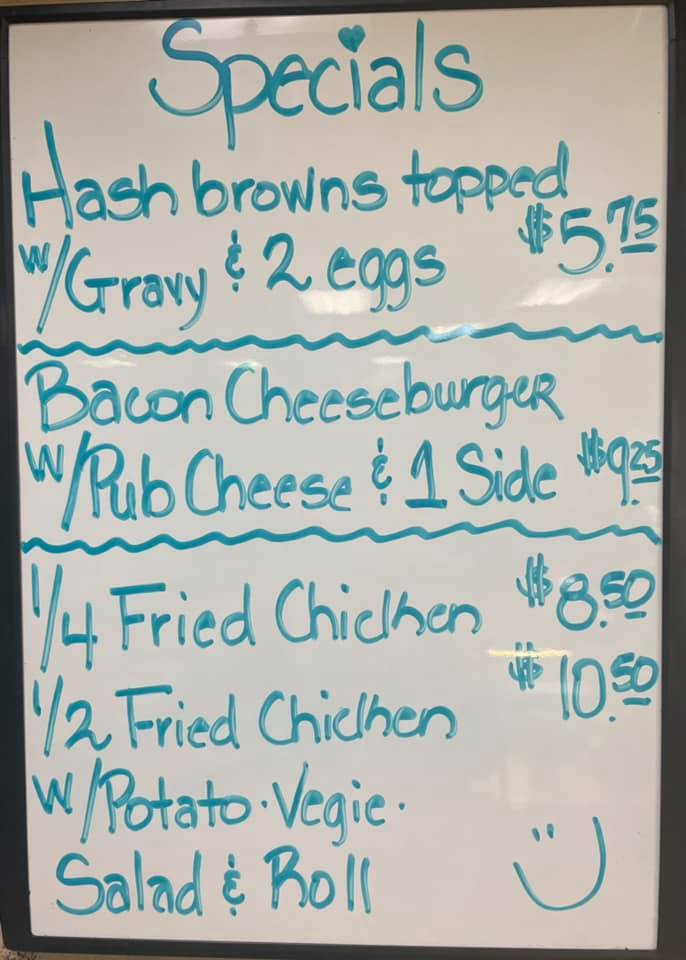 Specials
Hash browns topped
w/Gravy & 2 eggs $5.75
Bacon Cheeseburger
w/Pub Cheese & 1 Side $9.25
1/4 Fried Chicken $8.50
1/2 Fried Chicken $10.50
w/Potato · Vegie ·
Salad & Roll